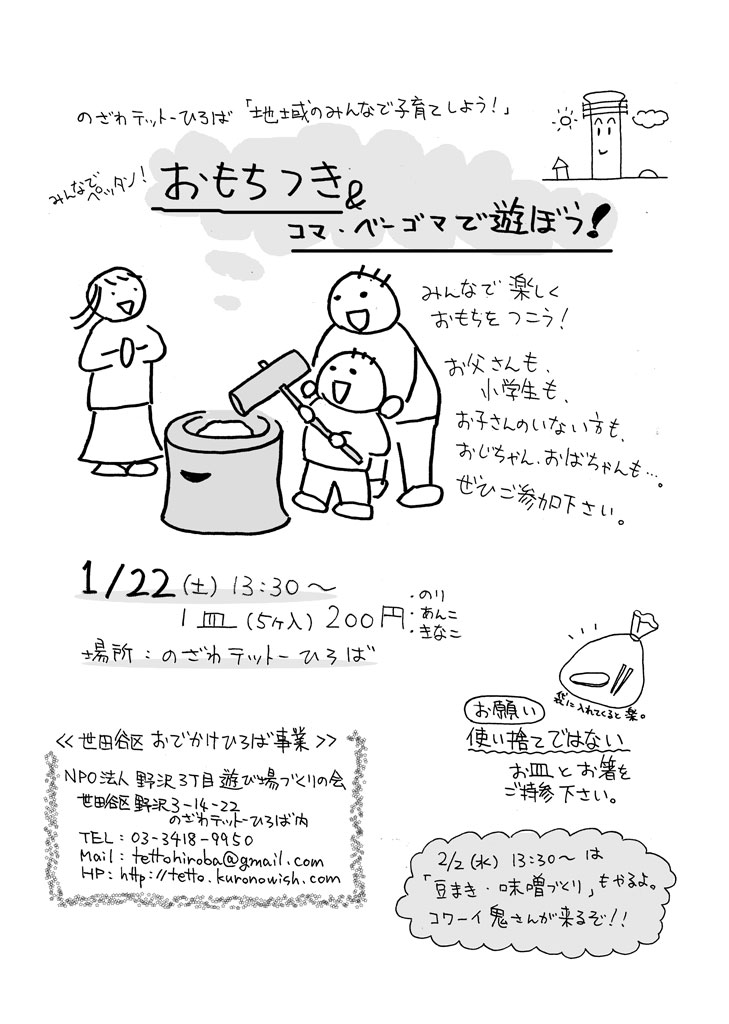 のざわテットーひろば「地域のみんなで子育てしよう！」
みんなで
ペッタン！
おもちつき&
コマ・ベーゴマで遊ぼう！
みんなで楽しく
おもちをつこう！
お父さんも、
小学生も、
お子さんのいない方も、
おじちゃん、おばちゃんも…。
ぜひご参加下さい。
1/22(土) 13:30〜
1皿(5ヶ入) 200円
・のり
・あんこ
・きなこ
場所：のざわテットーひろば
袋に入れてくると楽。
お願い
使い捨てではない
お皿とお箸を
ご持参下さい。
≪世田谷区 おでかけひろば事業≫
NPO法人 野沢3丁目遊び場づくりの会
世田谷区野沢3-14-22
のざわテットーひろば内
TEL：03-3418-9950
Mail：tettohiroba@gmail.com
HP：http://tetto.kuronowish.com
2/2(水) 13:30〜は
「豆まき・味噌づくり」もやるよ。
コワーイ鬼さんが来るぞ！！